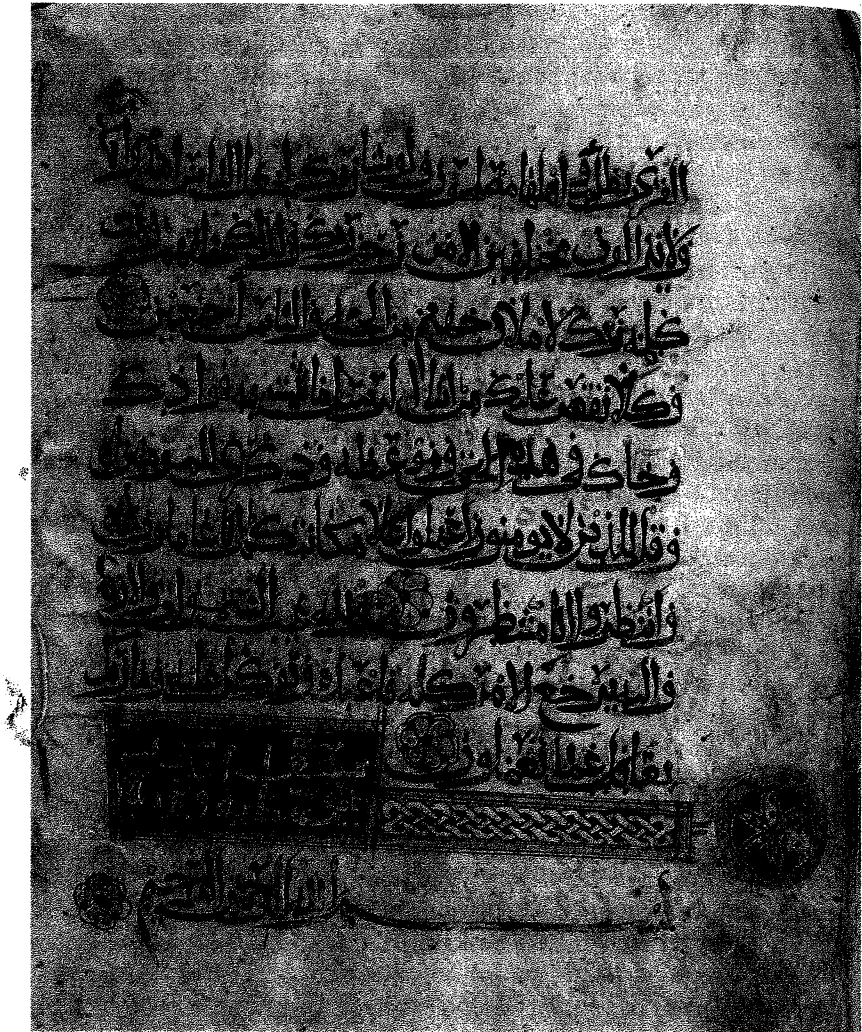 القرى بظلم واهلها مصلحون ولو شا ربك لجعل الناس امة واحدة
ولا يزالون مختلفين الا من رحم ربك ولذلك خلقهم وتمت
كلمة ربك لاملان جهنم من الجنة والناس اجمعين
وكلا نقص عليك من انبا الرسل ما نثبت به فوادك
وجاك في هذه الحق وموعظة وذكرى للمومنين
وقل للذين لا يومنون اعملوا على مكانتكم انا عاملون
وانتظروا انا منتظرون ولله غيب السموات والارض
واليه يرجع الامر كله فاعبده وتوكل عليه وما ربك
بغافل عما تعملون
بسم الله الرحمن الرحيم